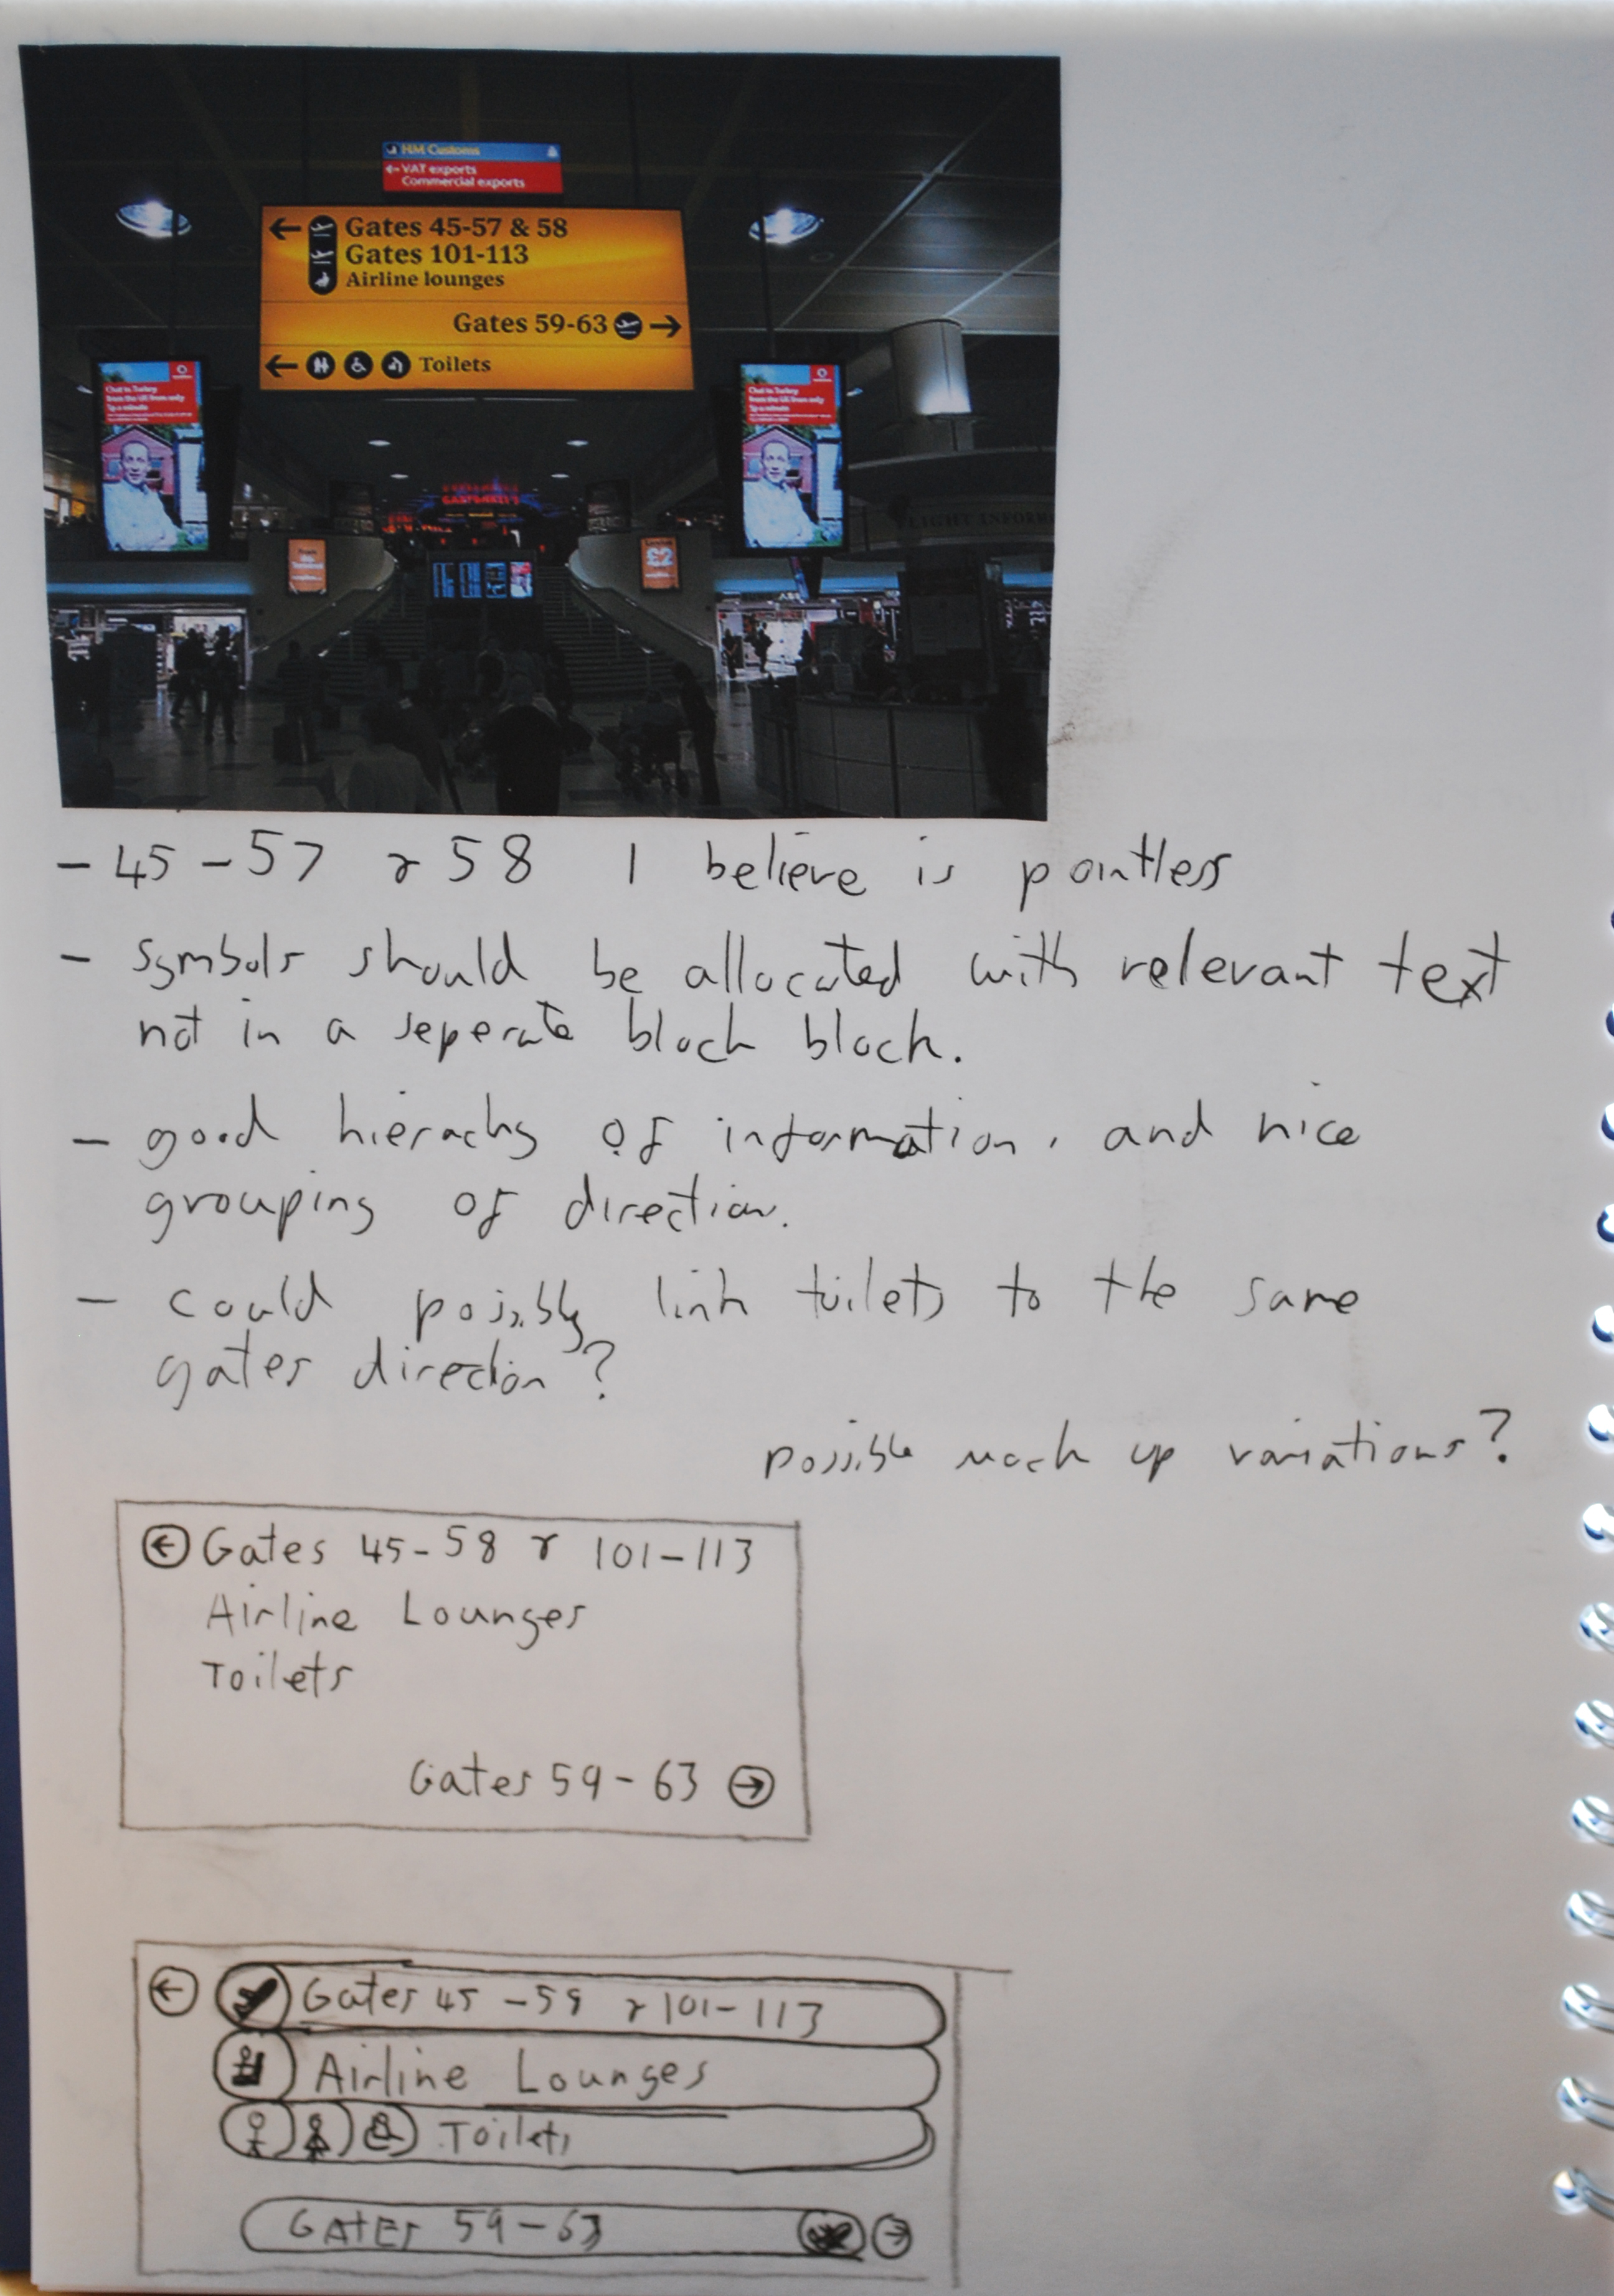 HM Customs
← VAT exports
Commercial exports
← Gates 45-57 & 58
Gates 101-113
Airline lounges
Gates 59-63 →
← Toilets
Chat to Turkey
from the UK from only
1p a minute
Chat to Turkey
from the UK from only
1p a minute
£2
FLIGHT INFORM
- 45-57 & 58 I believe is pointless
- symbols should be allocated with relevant text
not in a seperate block block.
- good hierachy of information, and nice
grouping of direction.
- could possibly link toilets to the same
gates direction?
possible mock up variations?
← Gates 45-58 & 101-113
Airline Lounges
Toilets
Gates 59-63 →
← Gates 45-59 & 101-113
Airline Lounges
Toilets
GATES 59-63 →